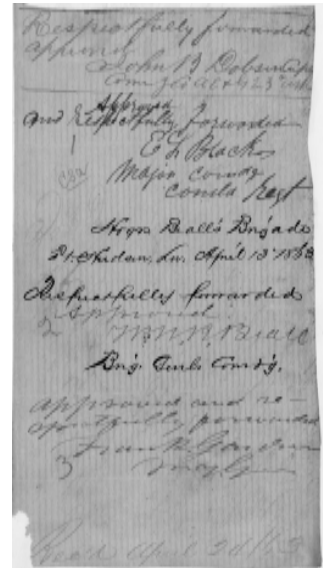 Respectfully forwarded
approved
John B Dobson Capt
Approved
and Respectfully Forwarded
1
E L Black
Major Comdg
Consld Regt
Hdqrs Beall's Brigade
Pt. Hudson, La. April 13" 1863
Respectfully forwarded
2 Approved.
W.N.R. Beall
Brig. Genl. Comd'g.
approved and re-
spectfully forwarded
Frank Gardner
3 Maj Gen
Recd April 1863